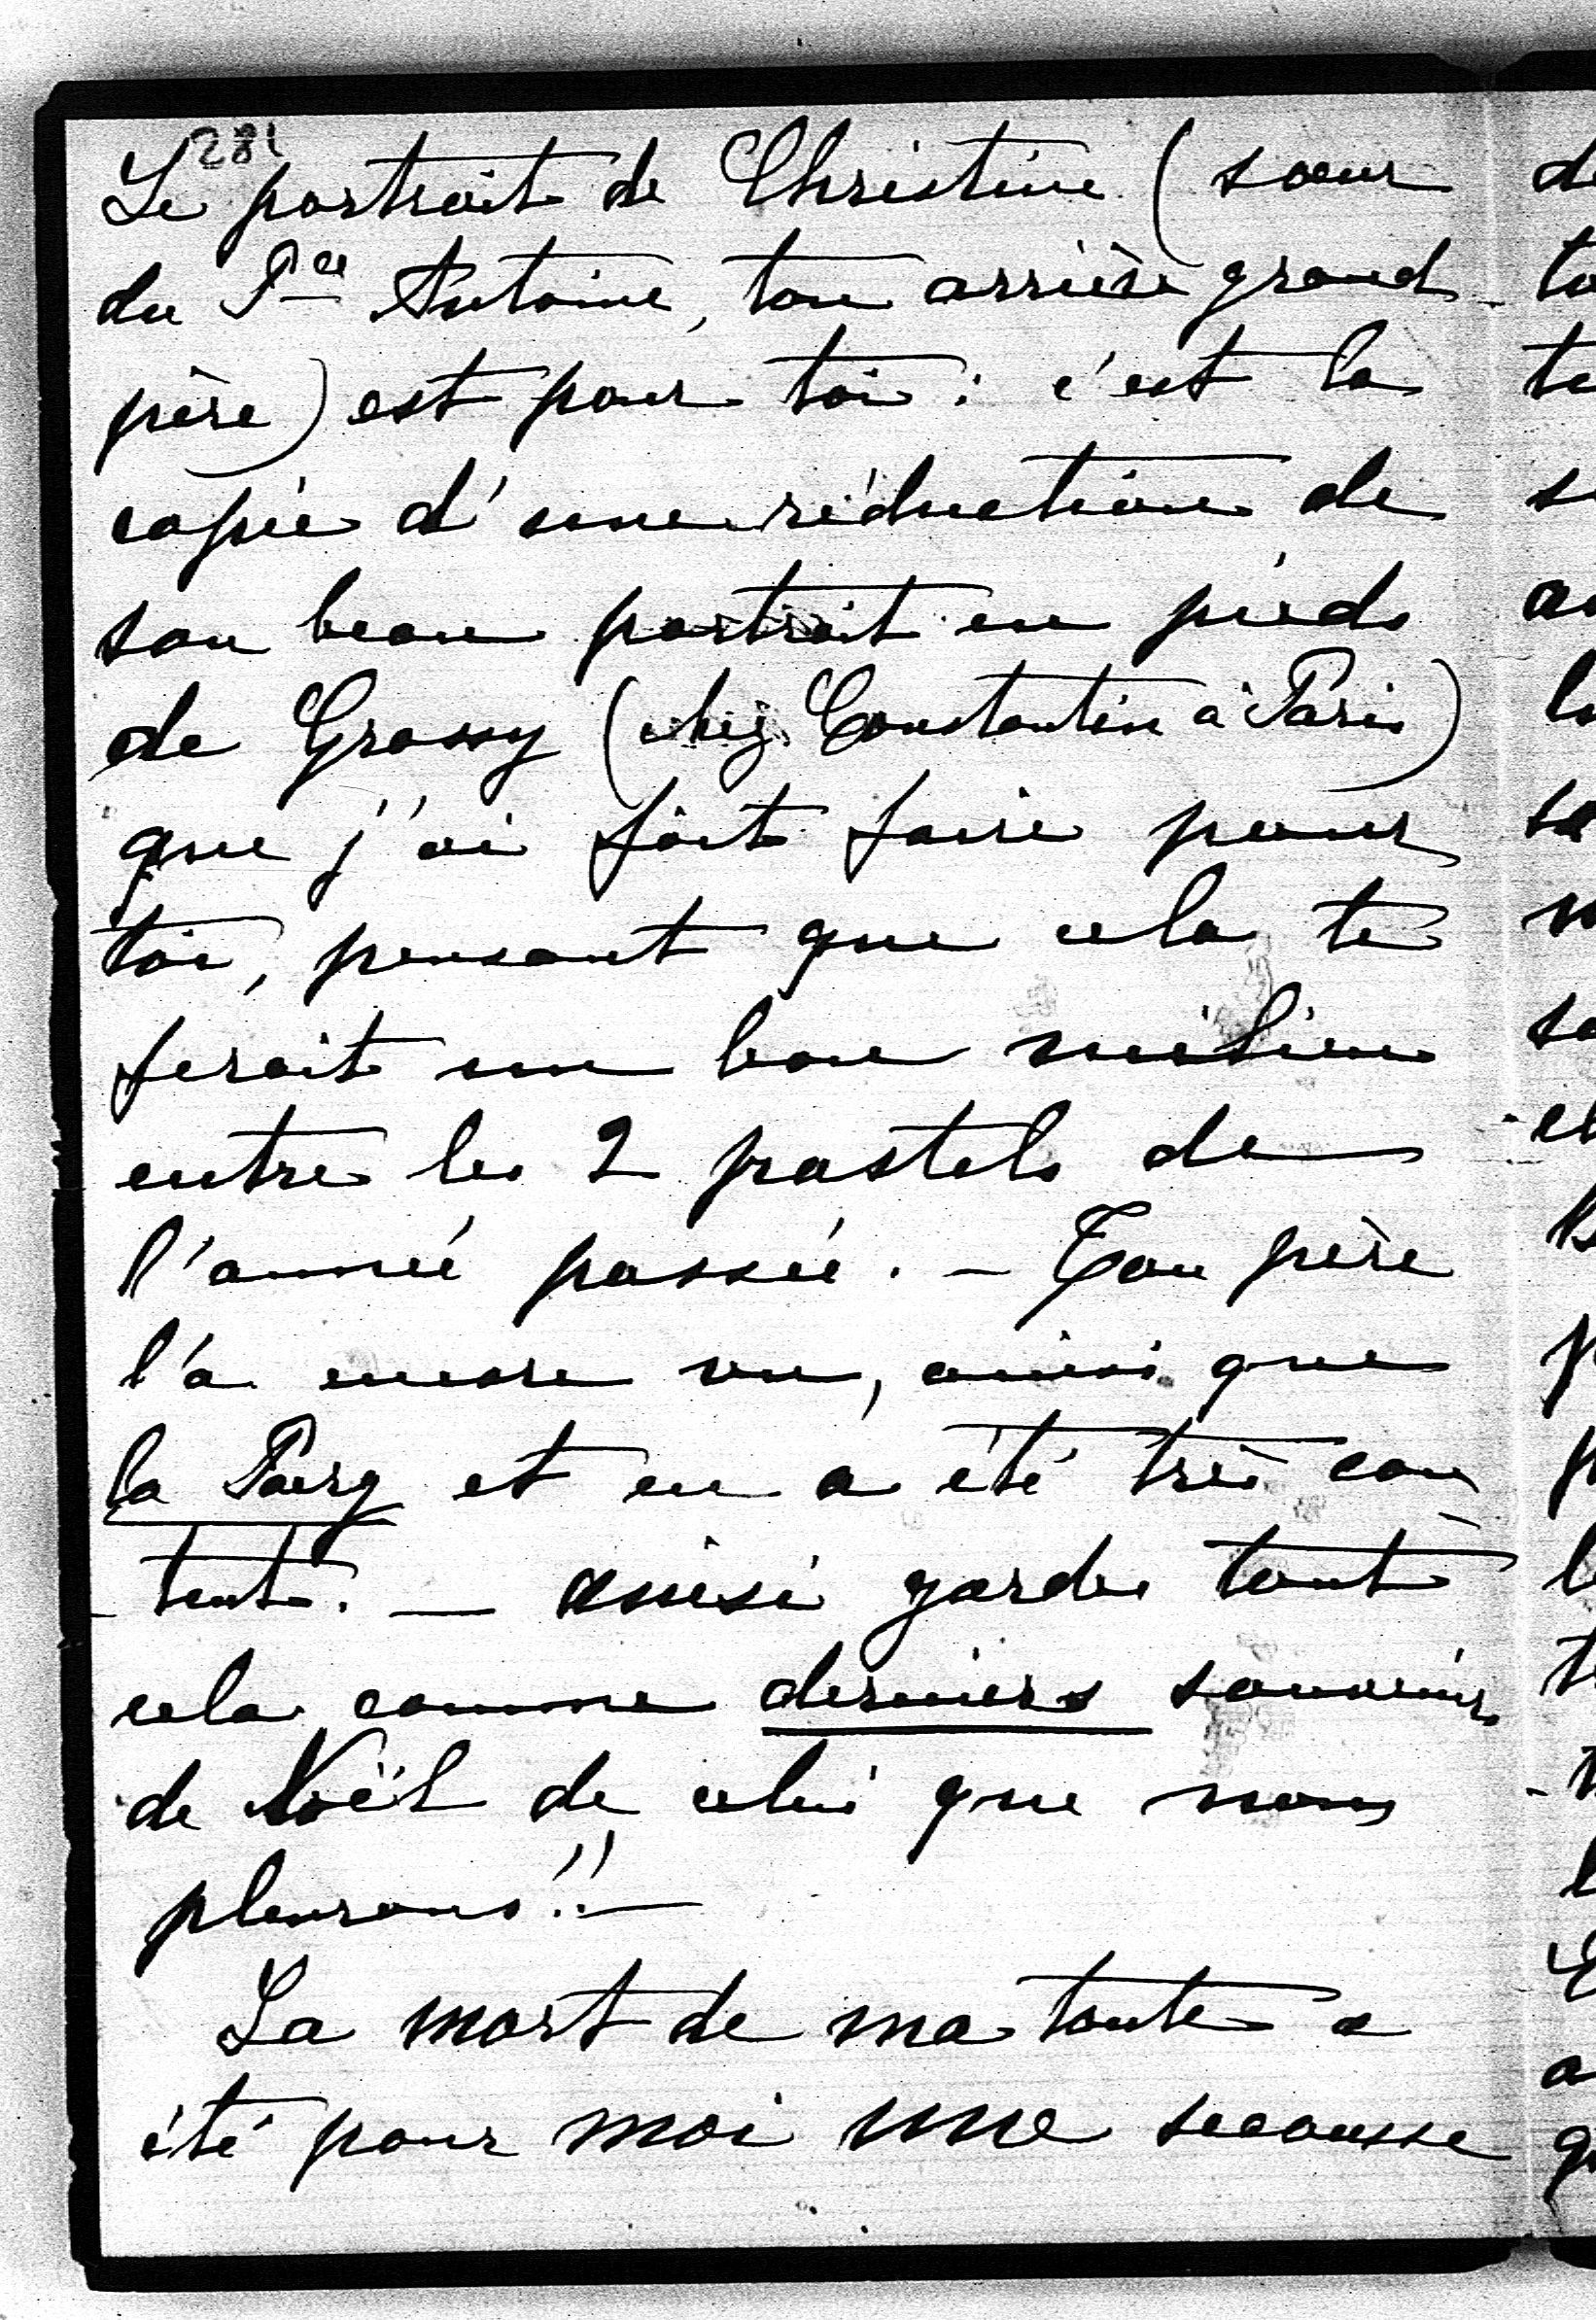 281
Le portrait de Christine (sœur
du Pce Antoine, ton arrière grand-
père) est pour toi : c'est la
copie d'une réduction de
son beau portrait en pieds
de Grassy (chez Constantin à Paris)
que j'ai fait faire pour
toi, pensant que cela te
ferait un bon milieu
entre les 2 pastels de
l'année passée. — Ton père
l'a encore vu, ainsi que
la et en a été très con
-tent. — ainsi garde tout
cela comme derniers souvenirs
de Noël de celui que nous
pleurons!! —
La mort de ma tante a
été pour moi une secousse